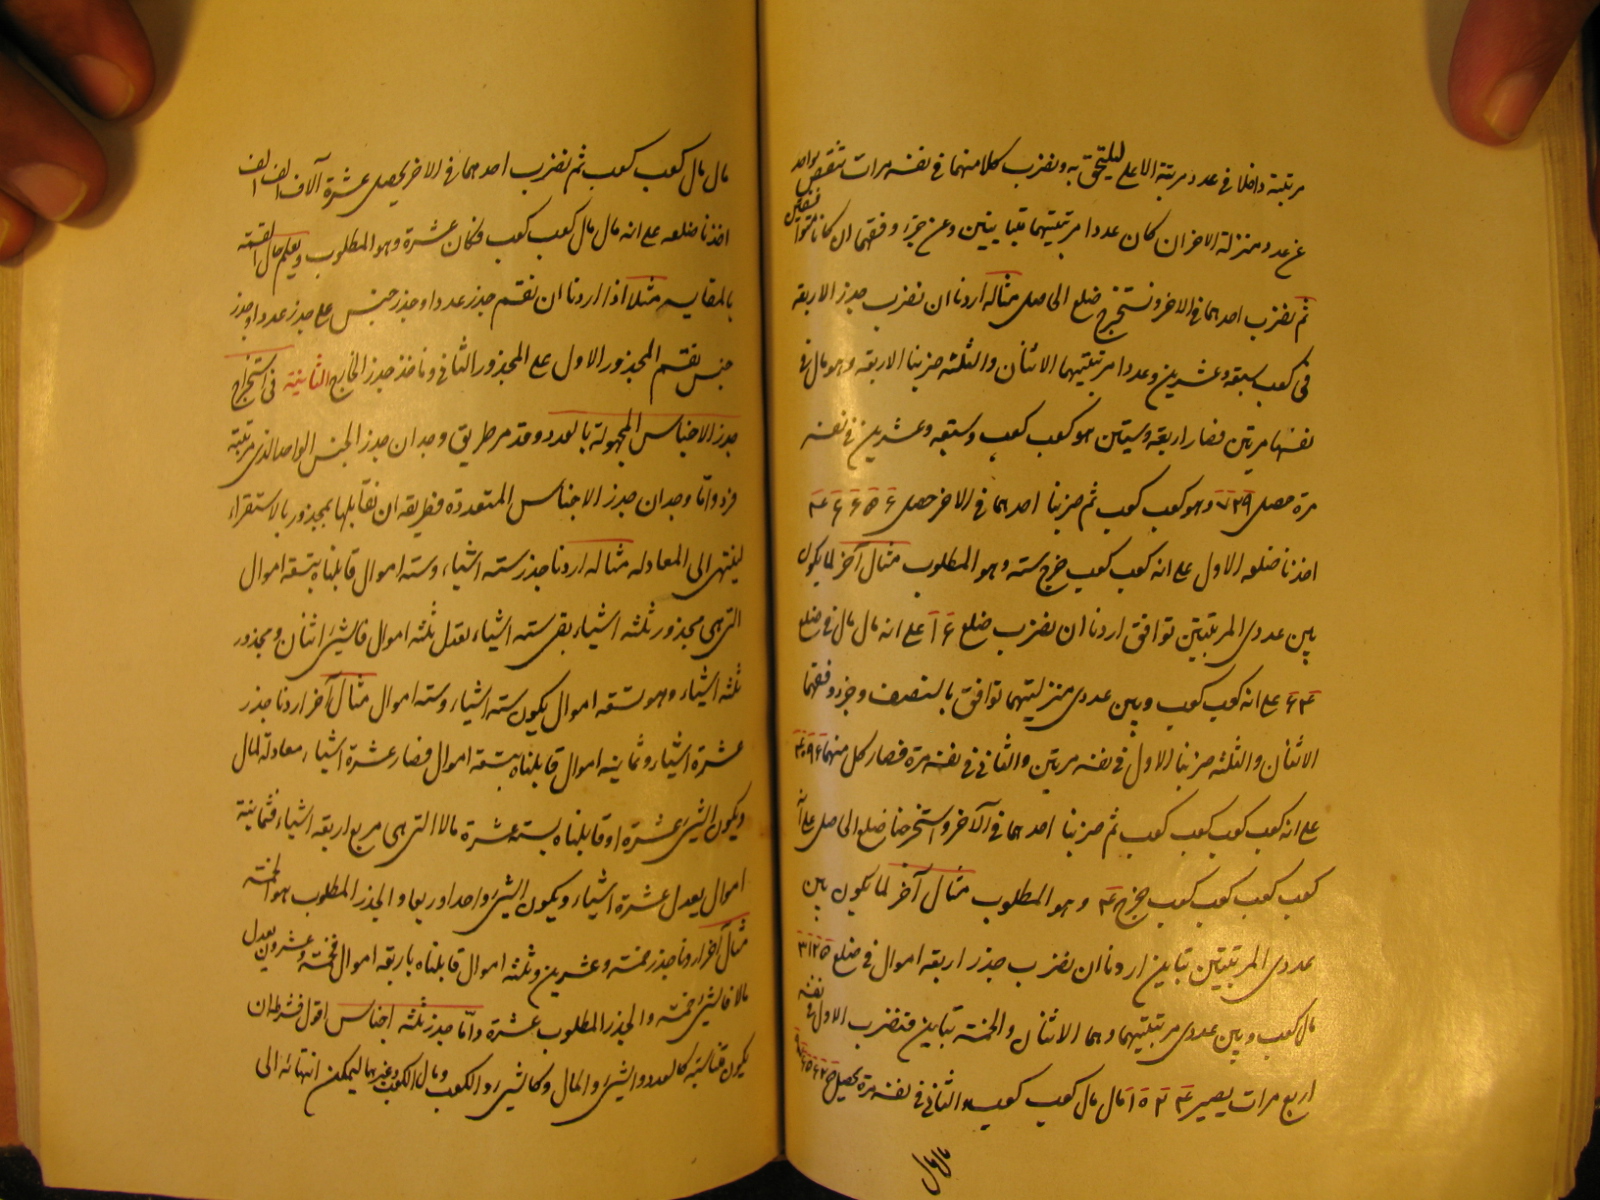 مرتبته داخلا فى عدد مرتبة الاعلى ليلتحق به ونضرب كلا منهما فى نفسه مرات تنقص بواحد
عن عدد منزلة الاخر ان كان عددا مرتبتيهما متباينين وعن جزء وفقهما ان كانا متوافقين
ثم نضرب احدهما فى الاخر ونستخرج ضلع الحاصل مثاله اردنا ان نضرب جذر الاربعة
فى كعب سبعة وعشرين وعددا مرتبتيهما الاثنان والثلثة ضربنا الاربعة وهو مال فى
نفسها مرتين فصار اربعة وستين هو كعب كعب وسبعة وعشرين فى نفسه
مرة حصل ٧٢٩ وهو كعب كعب ثم ضربنا احدهما فى الاخر حصل ٤٦٦٥٦
اخذنا ضلعه الاول على انه كعب كعب خرج ستة وهو المطلوب مثال آخر لما يكون
بين عددى المرتبتين توافق اردنا ان نضرب ضلع ١٦ على انه مال مال فى ضلع
٦٤ على انه كعب كعب وبين عددى منزلتيهما توافق بالنصف وجزء وفقهما
الاثنان والثلثة ضربنا الاول فى نفسه مرتين والثانى فى نفسه مرة فصار كل منهما ٤٠٩٦
على انه كعب كعب كعب كعب ثم ضربنا احدهما فى الآخر واستخرجنا ضلع الحاصل على انه
كعب كعب كعب كعب خرج ٤ وهو المطلوب مثال آخر لما يكون بين
عددى المرتبتين تباين اردنا ان نضرب جذر اربعة اموال فى ضلع ٣١٢٥
مال كعب وبين عددى مرتبتيهما وهما الاثنان والخمسة تباين فنضرب الاول فى نفسه
اربع مرات يصير ١٠٢٤ مال مال كعب كعب والثانى فى نفسه مرة يحصل ٩٧٦٥٦٢٥
مال مال
مال مال كعب كعب ثم نضرب احدهما فى الاخر يحصل عشرة آلاف الف الف
اخذنا ضلعه على انه مال مال كعب كعب فكان عشرة وهو المطلوب ويعلم حال القسمة
بالمقايسه مثلا اذا اردنا ان نقسم جذر عدد او جذر جنس على جذر عدد او جذر
جنس نقسم المجذور الاول على المجذور الثانى وناخذ جذر الخارج الثانية فى استخراج
جذر الاجناس المجهولة بالعدد وقد مر طريق وجدان جذر الجنس الواحد الذى مرتبته
فرد واما وجدان جذر الاجناس المتعددة فطريقه ان نقابلها بمجذور بالاستقراء
لينتهى الى المعادله مثاله اردنا جذر ستة اشياء وستة اموال قابلناه بتسعة اموال
التى هى مجذور ثلثة اشياء بقى ستة اشياء يعدل ثلثة اموال فالشئ اثنان ومجذور
ثلثة اشياء وهو تسعة اموال يكون ستة اشياء وستة اموال مثال آخر اردنا جذر
عشرة اشياء وثمانية اموال قابلناه بتسعة اموال فصار عشرة اشياء معادلة لمال
ويكون الشئ عشرة او قابلناه بستة عشرة مالا التى هى مربع اربعة اشياء فثمانية
اموال يعدل عشرة اشياء ويكون الشئ واحدا وربعا والجذر المطلوب هو الخمسة
مثال آخر اردنا جذر خمسة وعشرين وثلثة اموال قابلناه باربعة اموال فخمسة وعشرون يعدل
مالا فالشئ خمسة والجذر المطلوب عشرة واما جذر ثلثة اجناس اقول فشرط ان
يكون متناسبة كالعدد والشئ والمال وكالشئ والكعب ومال الكعب وغيرهما ليمكن انتهائه الى